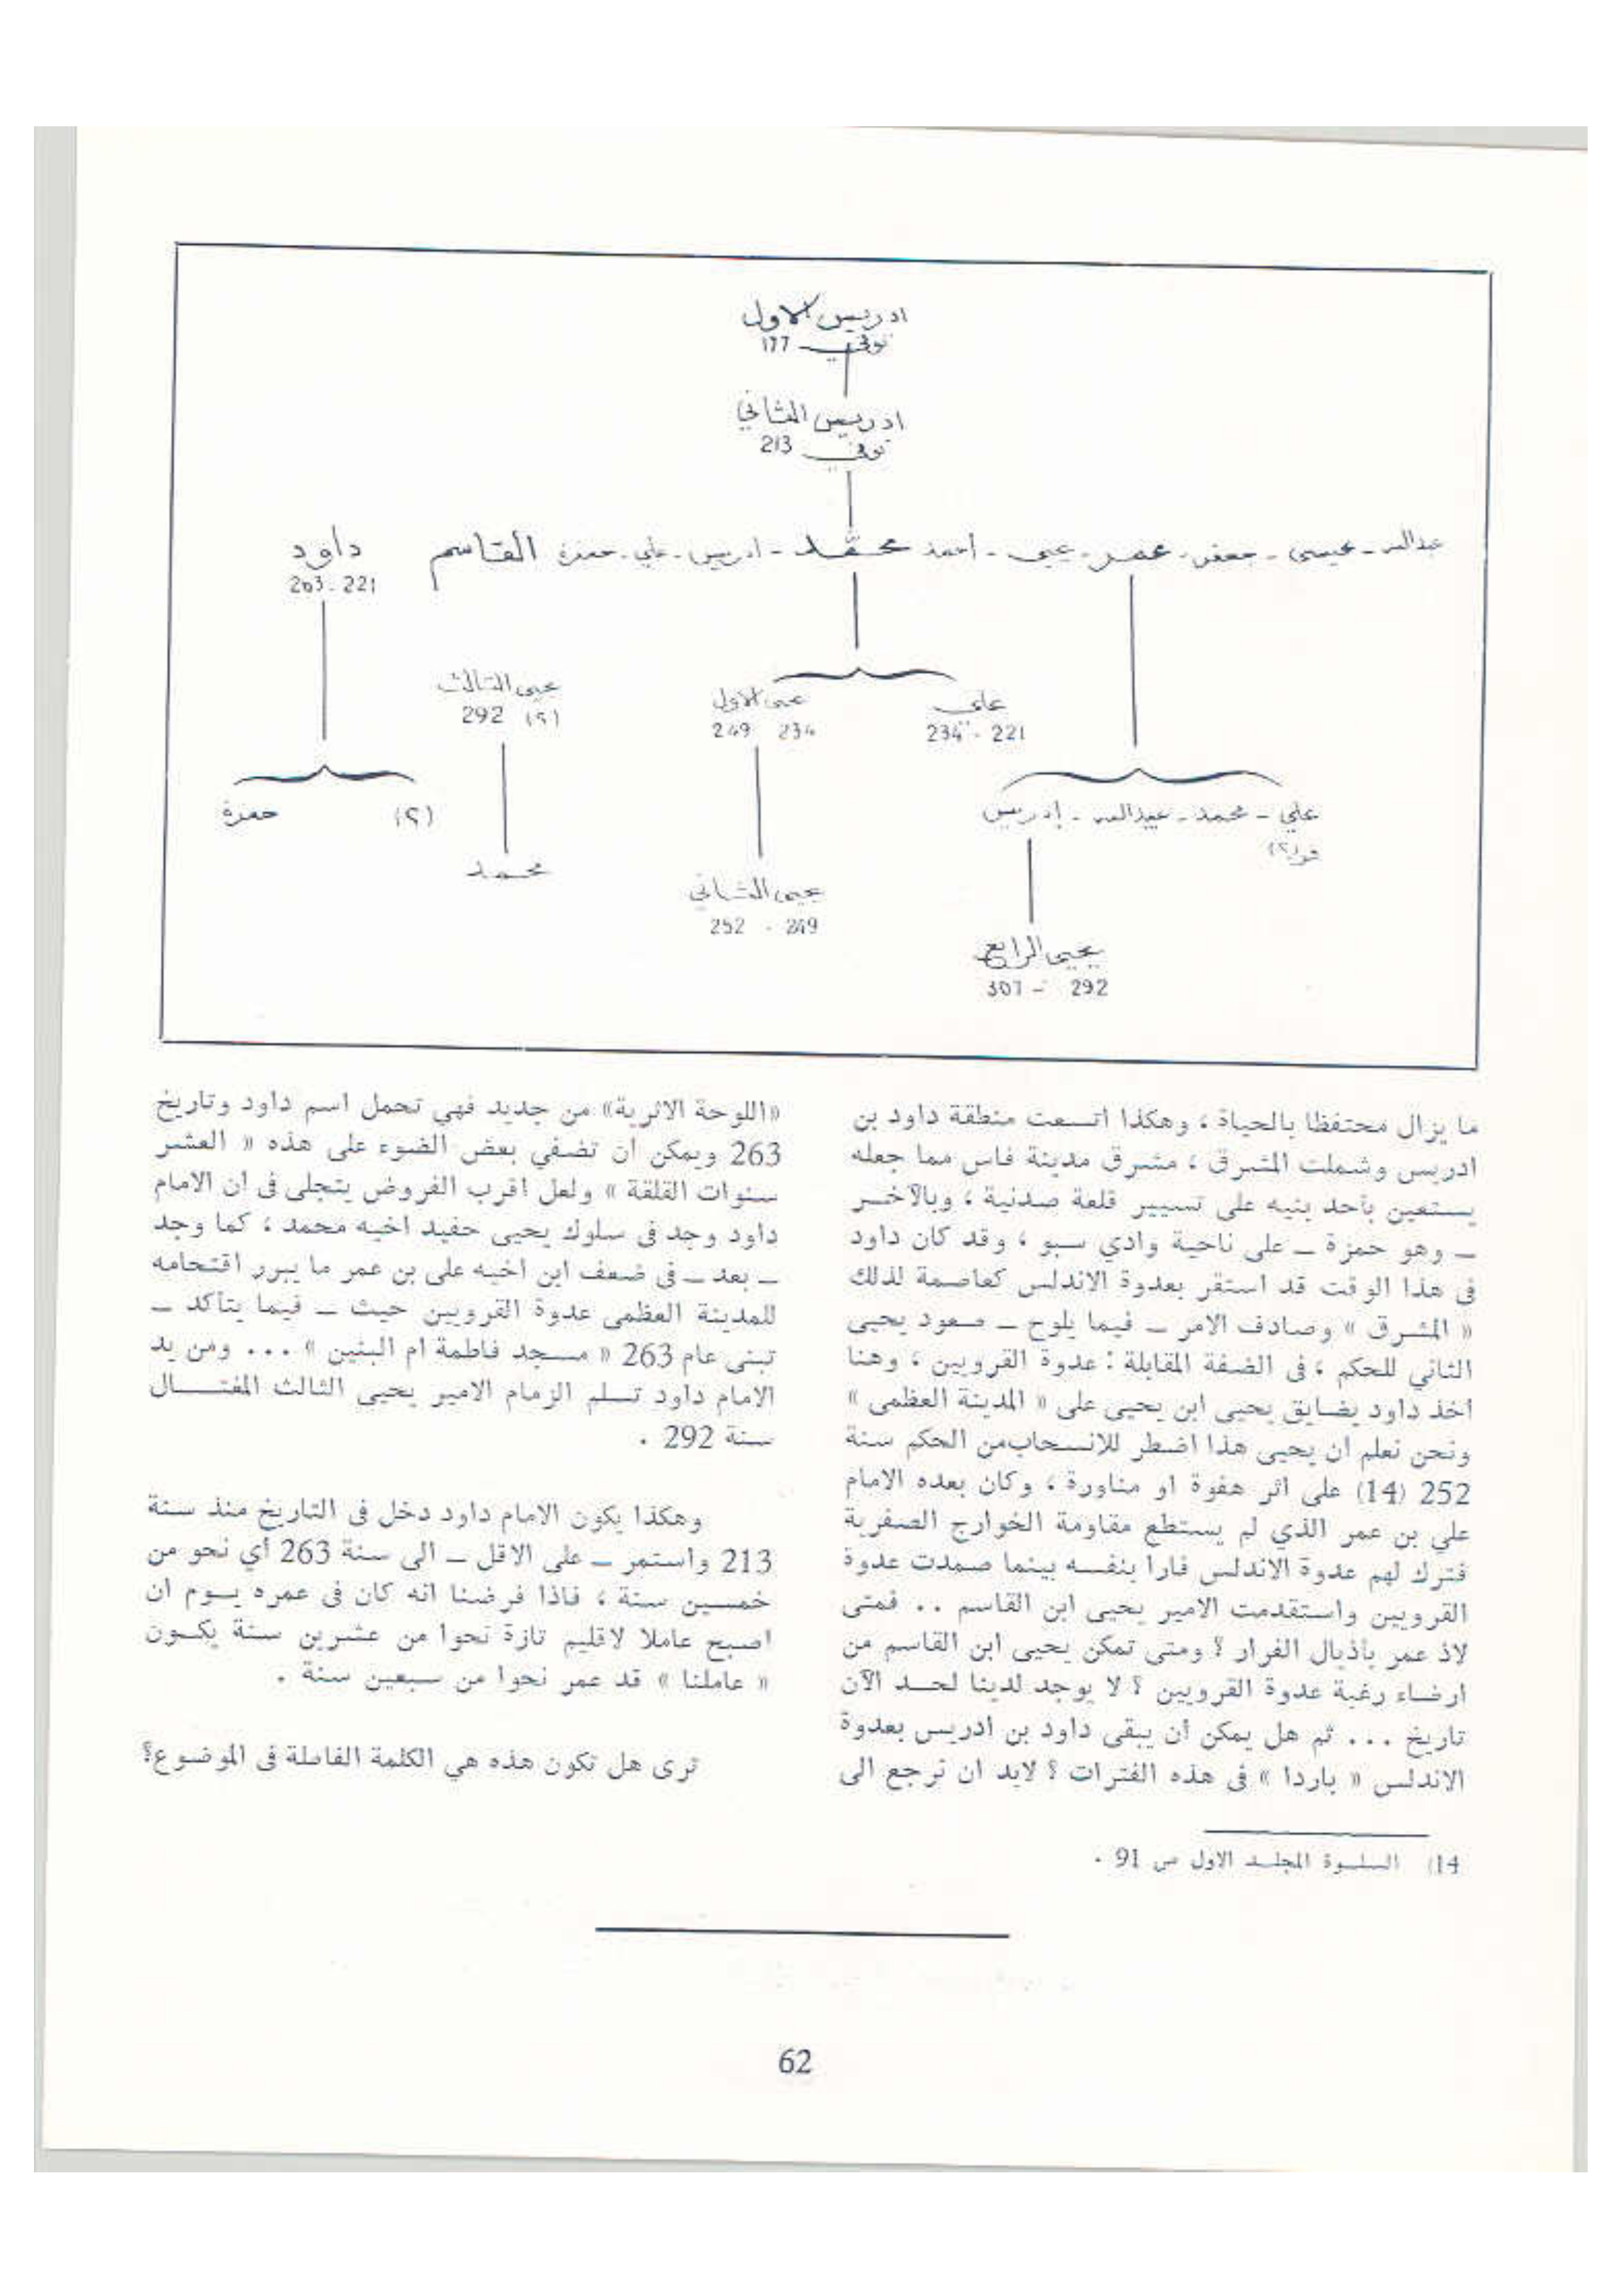 ادريس الاول
توفي 177
ادريس الثاني
توفي 213
عبدالله - عيسى - جعفر - عمر - يحيى - أحمد محمد - ادريس - علي - حمزة القاسم داود
221 - 263
علي
221 - 234
يحيى الاول
234 249
يحيى الثالث
(؟) 292
علي - محمد - عبيد الله - إدريس
(؟) حمزة
محمد
يحيى الثاني
249 - 252
يحيى الرابع
292 - 307
ما يزال محتفظا بالحياة ، وهكذا اتسعت منطقة داود بن
ادريس وشملت المشرق ، مشرق مدينة فاس مما جعله
يستعين بأحد بنيه على تسيير قلعة صدنية ، وبالآخـر
ـ وهو حمزة ـ على ناحية وادي سبو ، وقد كان داود
فى هذا الوقت قد استقر بعدوة الاندلس كعاصمة لذلك
« المشرق » وصادف الامر ـ فيما يلوح ـ صعود يحيى
الثاني للحكم ، فى الضفة المقابلة : عدوة القرويين ، وهنا
اخذ داود يضايق يحيى ابن يحيى على « المدينة العظمى »
ونحن نعلم ان يحيى هذا اضطر للانسحاب من الحكم سنة
252 (14) على اثر هفوة او مناورة ، وكان بعده الامام
علي بن عمر الذي لم يستطع مقاومة الخوارج الصفرية
فترك لهم عدوة الاندلس فارا بنفسه بينما صمدت عدوة
القرويين واستقدمت الامير يحيى ابن القاسم .. فمتى
لاذ عمر بأذيال الفرار ؟ ومتى تمكن يحيى ابن القاسم من
ارضاء رغبة عدوة القرويين ؟ لا يوجد لدينا لحـد الآن
تاريخ ... ثم هل يمكن أن يبقى داود بن ادريس بعدوة
الاندلس « باردا » فى هذه الفترات ؟ لابد ان نرجع الى
14) السلـوة المجلـد الاول ص 91 .
«اللوحة الاثرية» من جديد فهي تحمل اسم داود وتاريخ
263 ويمكن ان تضفي بعض الضوء على هذه « العشر
سنوات القلقة » ولعل اقرب الفروض يتجلى فى ان الامام
داود وجد فى سلوك يحيى حفيد اخيه محمد ، كما وجد
ـ بعد ـ فى ضعف ابن اخيه على بن عمر ما يبرر اقتحامه
للمدينة العظمى عدوة القرويين حيث ـ فيما يتأكد ـ
تبنى عام 263 « مسجد فاطمة ام البنين » ... ومن يد
الامام داود تسلم الزمام الامير يحيى الثالث المغتـال
سنة 292 .
وهكذا يكون الامام داود دخل فى التاريخ منذ سنة
213 واستمر ـ على الاقل ـ الى سنة 263 أي نحو من
خمسين سنة ، فاذا فرضنا انه كان فى عمره يـوم ان
اصبح عاملا لاقليم تازة نحوا من عشرين سنة يكـون
« عاملنا » قد عمر نحوا من سبعين سنة .
ترى هل تكون هذه هي الكلمة الفاصلة فى الموضوع؟
62